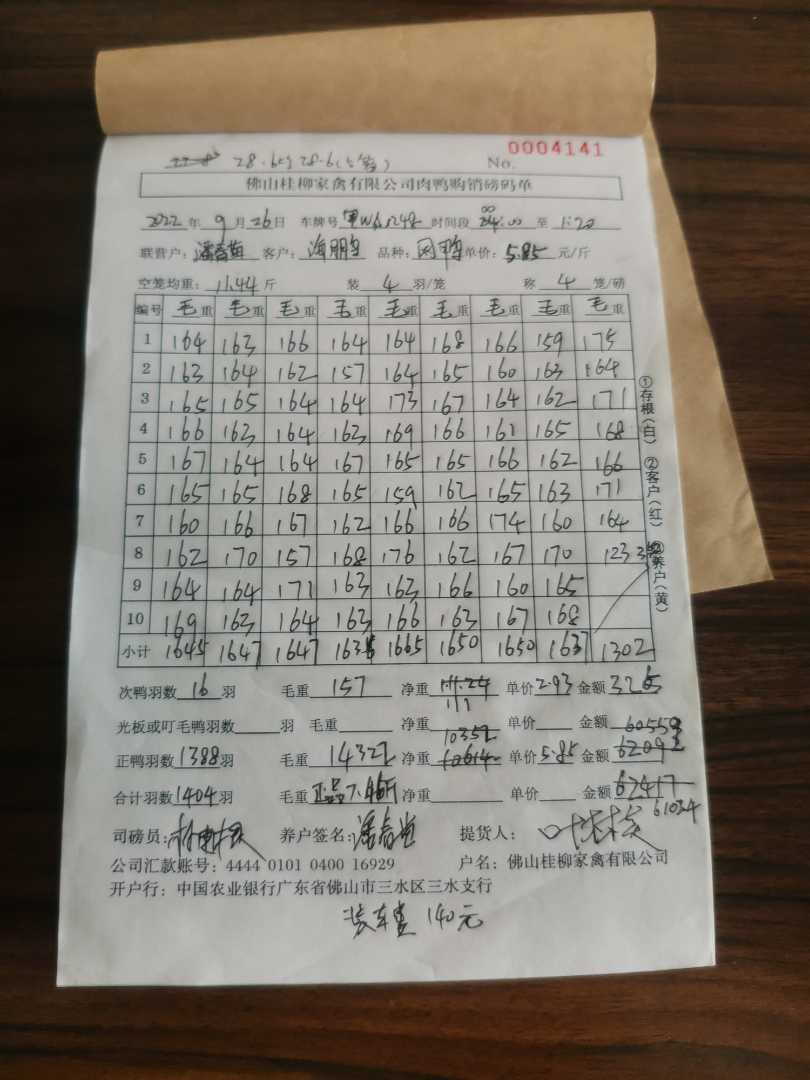 28.6 28.6
No. 0004141
佛山桂柳家禽有限公司肉鸭购销磅码单
2022年 9月 26日 车牌号 时间段 至 1:20
联营户: 潘春堂 客户: 海朋 品种: 单价: 5.85 元/斤
空笼均重: 11.44 斤 装 4 羽/笼 称 4 笼/磅
编号 毛重 毛重 毛重 毛重 毛重 毛重 毛重 毛重 毛重
1 164 163 166 164 164 168 166 159 175
2 163 164 162 157 164 165 160 163 164
3 165 165 164 164 173 167 164 162 171
4 166 163 164 163 169 166 161 165 168
5 167 164 164 167 165 165 166 162 166
6 165 165 168 165 159 162 165 163 171
7 160 166 167 162 166 166 174 160 164
8 162 170 157 168 176 162 167 170 123
9 164 164 171 163 163 166 160 165
10 169 163 164 163 166 163 167 168
小计 1645 1647 1647 1636 1665 1650 1650 1637 1302
①存根(白) ②客户(红) ③养户(黄)
次鸭羽数 16 羽 毛重 157 净重 111 单价 2.93 金额 325
光板或叮毛鸭羽数 羽 毛重 净重 单价 金额
正鸭羽数 1388 羽 毛重 14322 净重 10352 单价 5.85 金额 60559
合计羽数 1404 羽 毛重 正品7.46斤 净重 单价 金额 62417
61034
司磅员: 养户签名: 潘春堂 提货人:
公司汇款账号: 4444 0101 0400 16929 户名: 佛山桂柳家禽有限公司
开户行: 中国农业银行广东省佛山市三水区三水支行
装车费 140元